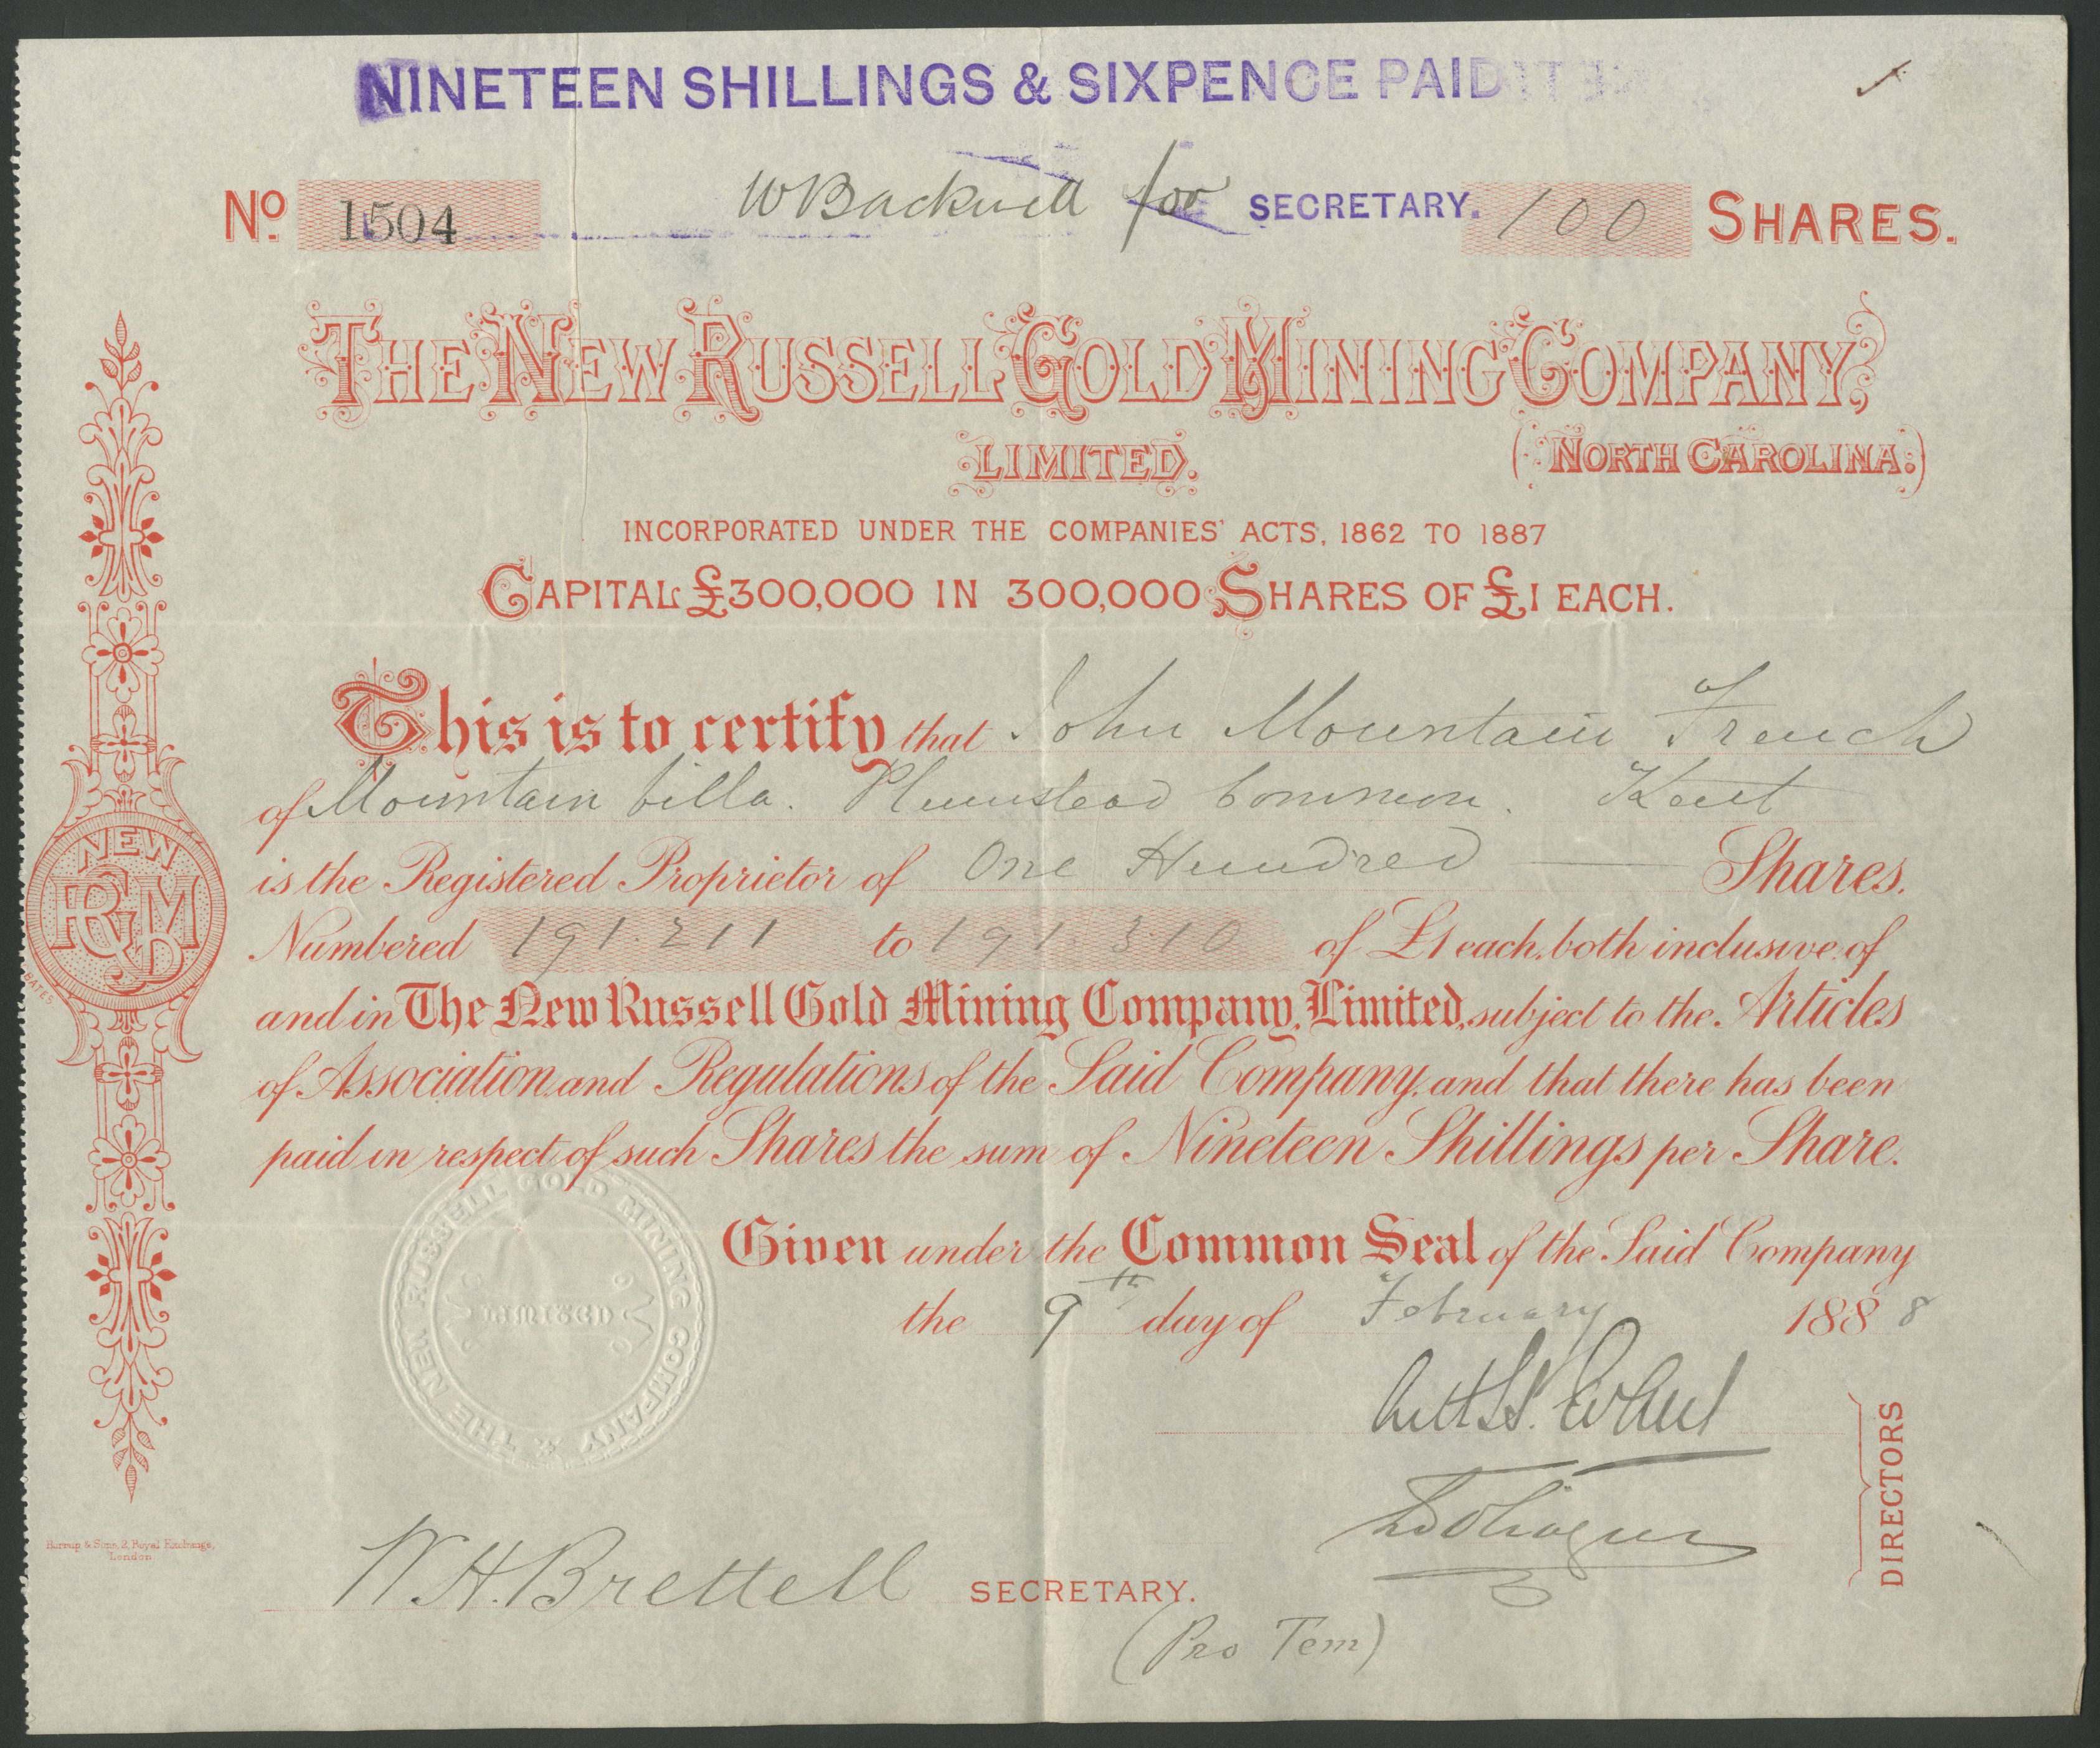 NINETEEN SHILLINGS & SIXPENCE PAID
No. 1504 W Backwell for SECRETARY. 100 SHARES.
THE NEW RUSSELL GOLD MINING COMPANY,
LIMITED. (NORTH CAROLINA.)
INCORPORATED UNDER THE COMPANIES' ACTS, 1862 TO 1887
CAPITAL £300,000 IN 300,000 SHARES OF £1 EACH.
This is to certify that John Mountain French
of Mountain Villa. Plumstead Common. Kent
is the Registered Proprietor of One Hundred Shares.
Numbered 191.211 to 191.310 of £1 each, both inclusive, of
and in The New Russell Gold Mining Company, Limited, subject to the Articles
of Association and Regulations of the Said Company, and that there has been
paid in respect of such Shares the sum of Nineteen Shillings per Share.
Given under the Common Seal of the Said Company
the 9th day of February 1888
NEW
RGM
BATES
THE NEW RUSSELL GOLD MINING COMPANY
LIMITED
DIRECTORS
Burrup & Sons, 2, Royal Exchange,
London
W.H. Brettell SECRETARY.
(Pro Tem)